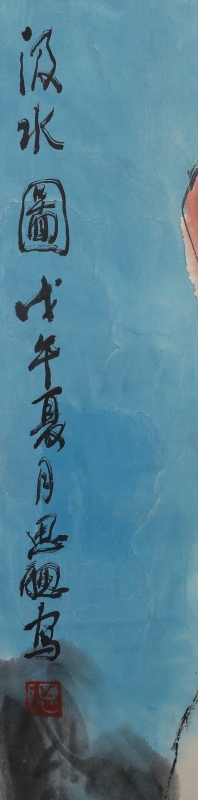 汲水圖戊午夏月思聰寫